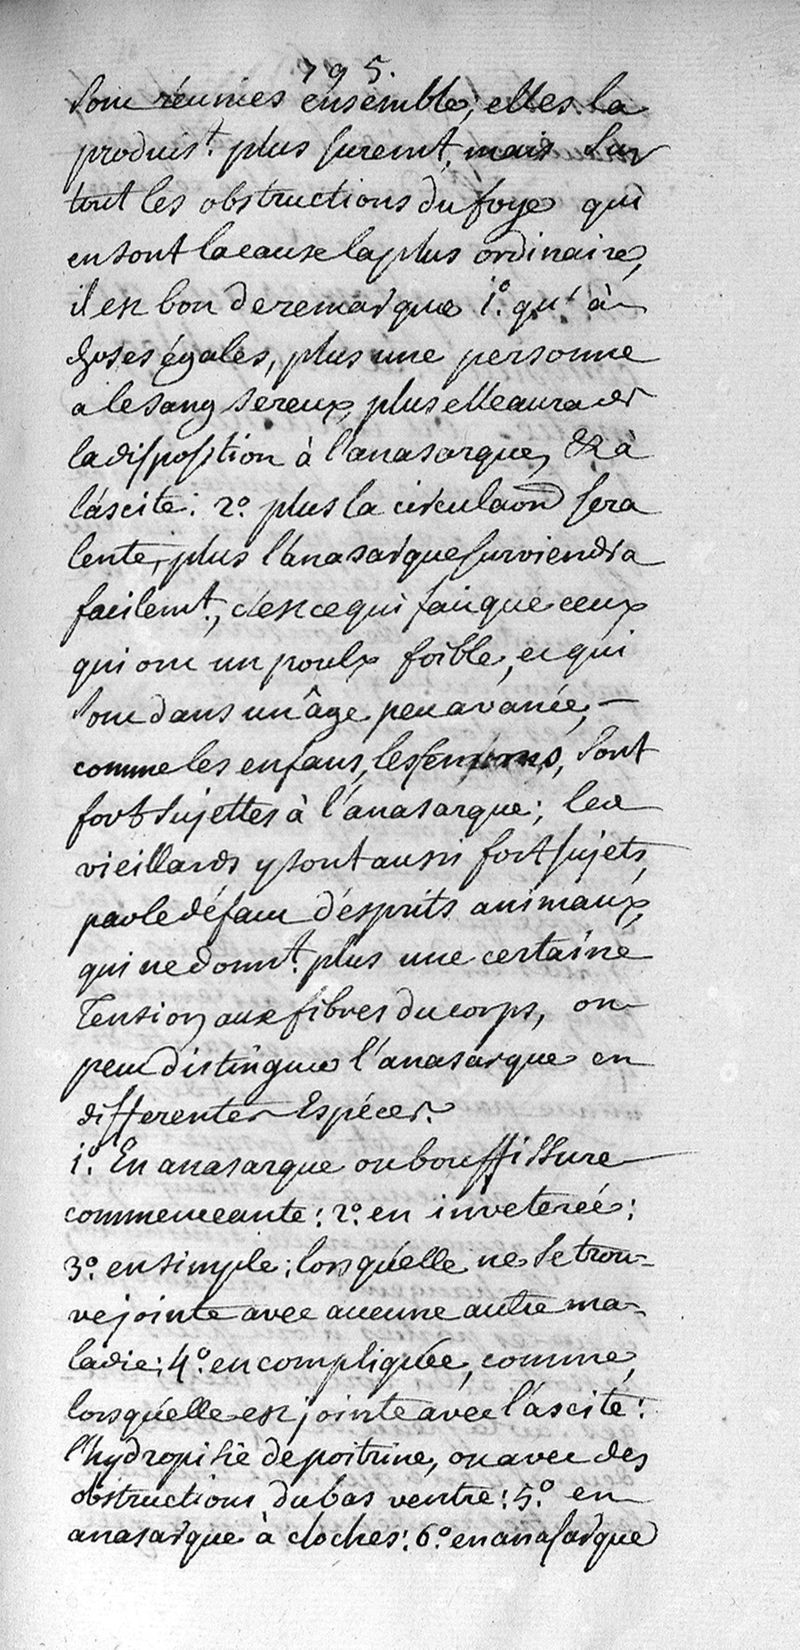 795.
sont réunies ensemble, elles la
produist plus suremt, mais sur
tout les obstructions du foye qui
en sont la cause la plus ordinaire,
il est bon de remarque 1.º qu'à
choses égales, plus une personne
a le sang sereux, plus elle aura de
la disposition à l'anasarque, & à
l'áscite: 2.º plus la circulaon sera
lente, plus l'anasarque surviendra
facilemt., c'est ce qui fait que ceux
qui ont un poulx foible, et qui
sont dans un âge peu avancé, –
comme les enfans, les femmes, sont
fort sujettes à l'anasarque; les
vieillards y sont aussi fort sujets,
par le défaut d'ésprits animaux,
qui ne donnt. plus une certaine
Tension aux fibres du corps, on
peut distingue l'anasarque en
differentes Espéces.
1.º En anasarque ou bouffissure
commenceante: 2.º en inveterée:
3.º en simple; lorsqu'elle ne se trou-
ve jointe avec aucune autre ma-
ladie; 4.º en compliquée, comme,
lorsqu'elle est jointe avec l'áscite:
l'hydropisie de poitrine, ou avec des
obstructions du bas ventre: 5.º en
anasarque à cloches: 6.º en anasarque